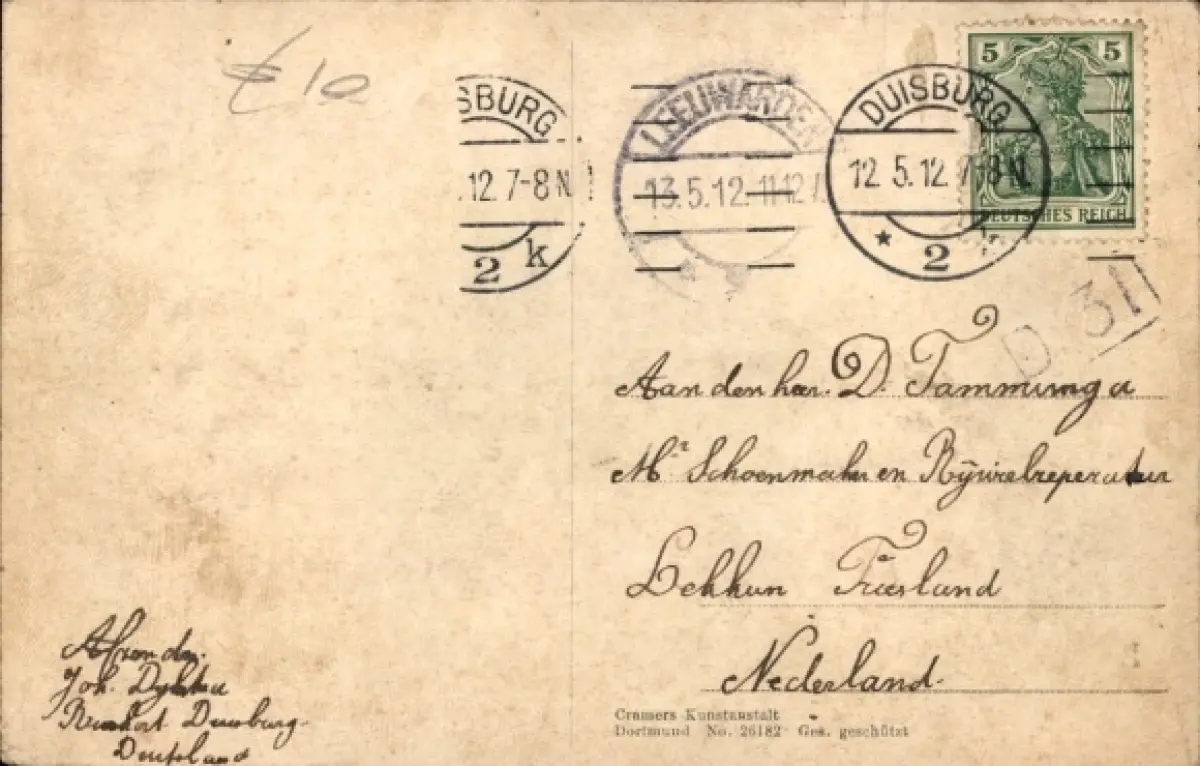 € 10
SBURG
.12 7-8 N
2 k
LEEUWARDEN
13.5.12. 11-12
DUISBURG
12. 5. 12. 7-8 N
* 2
5 5
DEUTSCHES REICH
D 31
Aan den heer. D. Tammimga
Mr Schoenmaker en Rijwielreperateur
Lekkun Friesland
Nederland.
Cramers Kunstanstalt
Dortmund No. 26182 Ges. geschützt
Joh. Dykstra
Duusburg